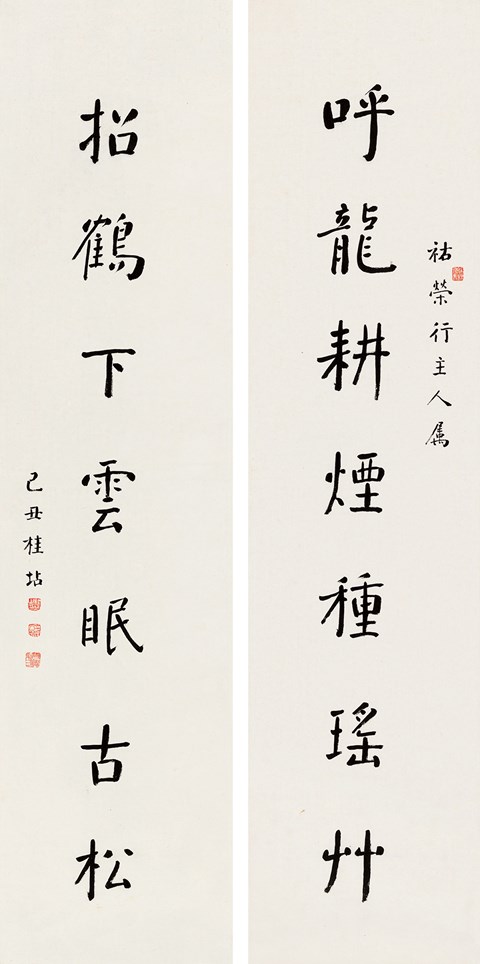 祐榮行主人属
呼龍耕煙種瑶艸
招鶴下雲眠古松
己丑桂坫